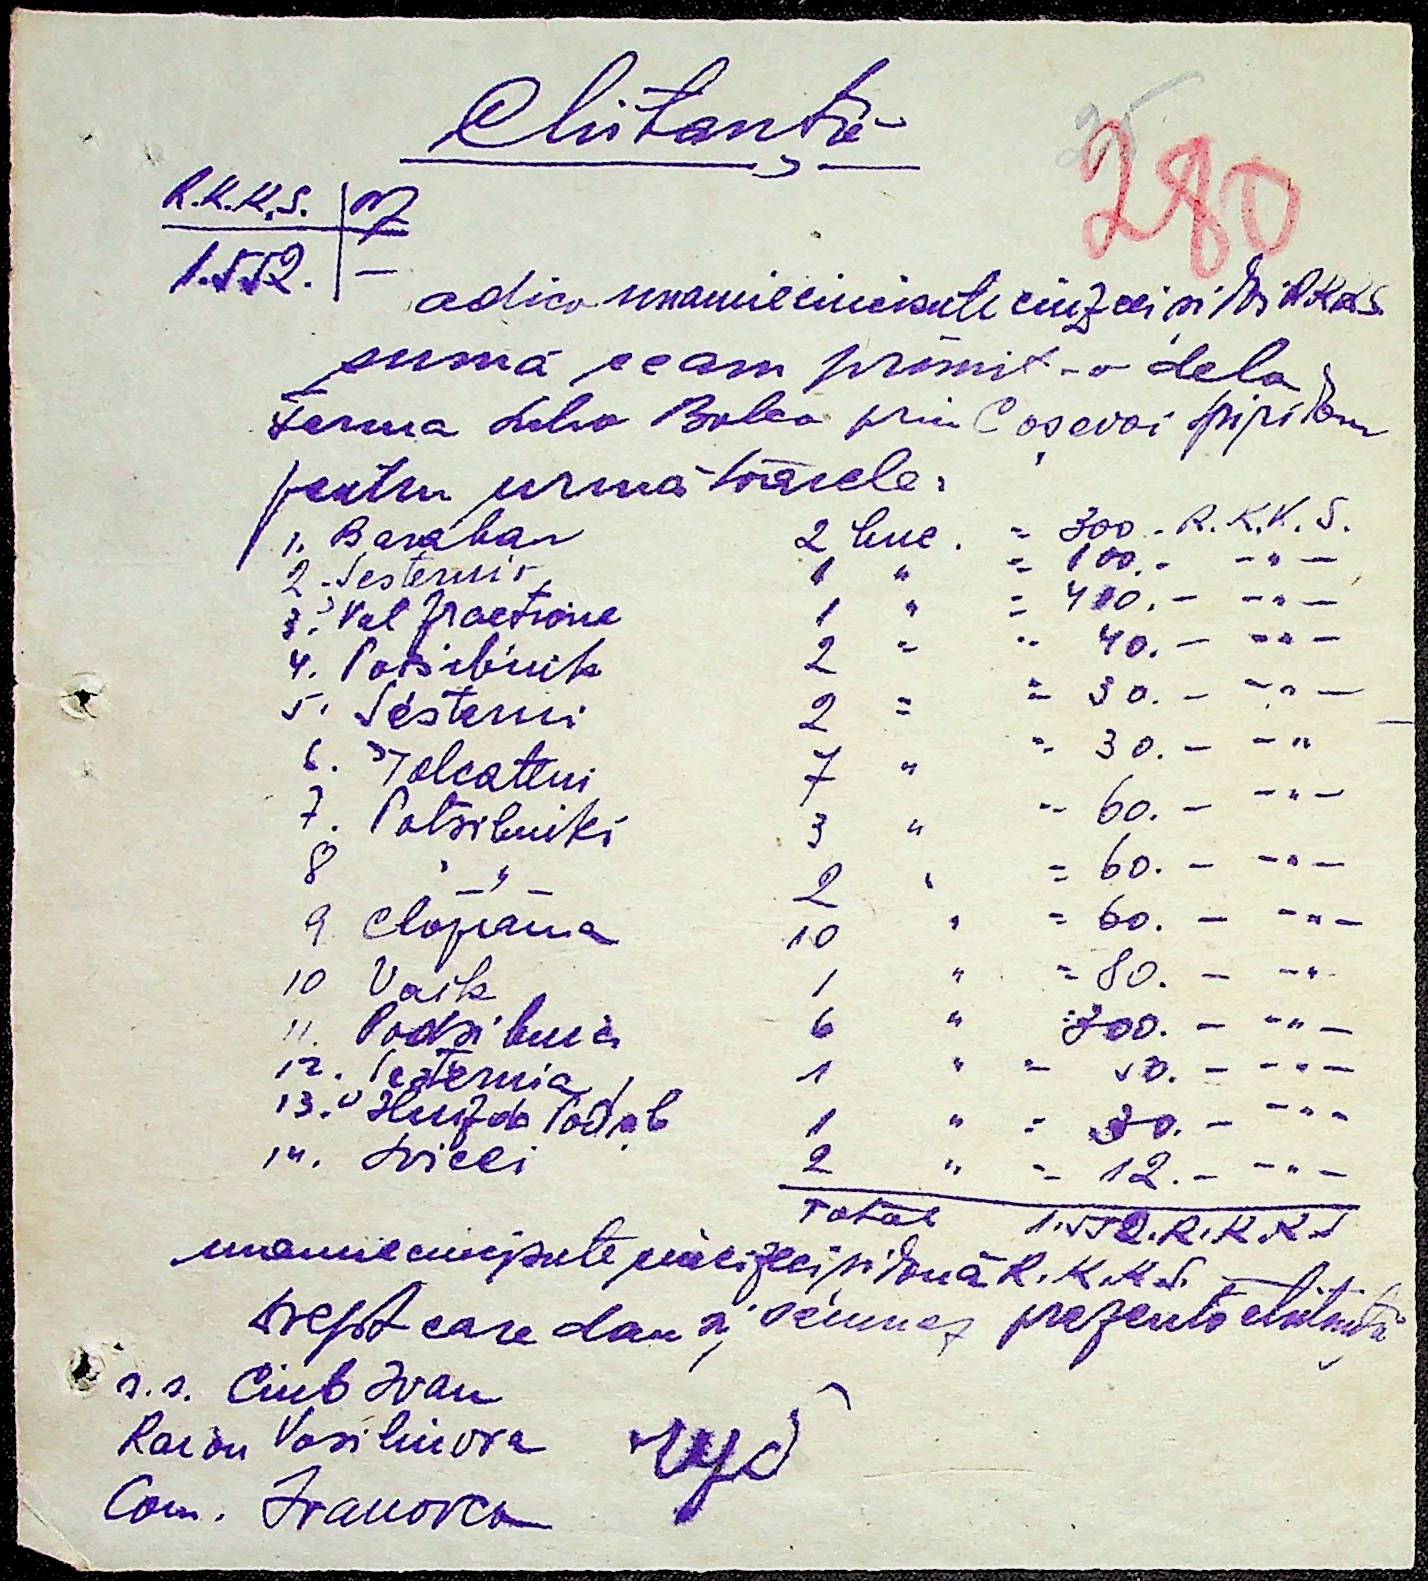 Chitanță
280
R.K.K.S.
1.552. —
adica unamiecincisute cinzeci si doi R.K.K.S.
sumă ce am primit-o dela
Ferma Balca prin Coșevoi Spiridon
pentru următoarele:
1. Baraban 2 buc. = 300.- R.K.K.S.
2. Sesternie 1 " = 100.- -"-
3. Val fractione 1 " = 400.- -"-
4. Potsibnik 2 " " 40.- -"-
5. Sesterni 2 = = 30.- -"-
6. 7 " = 30.- -"
7. Potsibniki 3 " = 60.- -"-
8 -"- 2 " = 60.- -"-
9 Clopana 10 " = 60.- -"-
10 Vaik 1 " = 80.- -"-
11. Podsibnic 6 " 300.- -"-
12. Sesternia 1 " = 50.- -"-
13. Podsib 1 " = 30.- -"-
14. 2 " = 12.- -"-
Total 1.552. R.K.K.S
unamiecincisute cincizeci si două R.K.K.S.
Drept care dau și semnez prezenta chitanță
s.s. Ciub Ivan
Raion Vasilinova
Com. Ivanovca